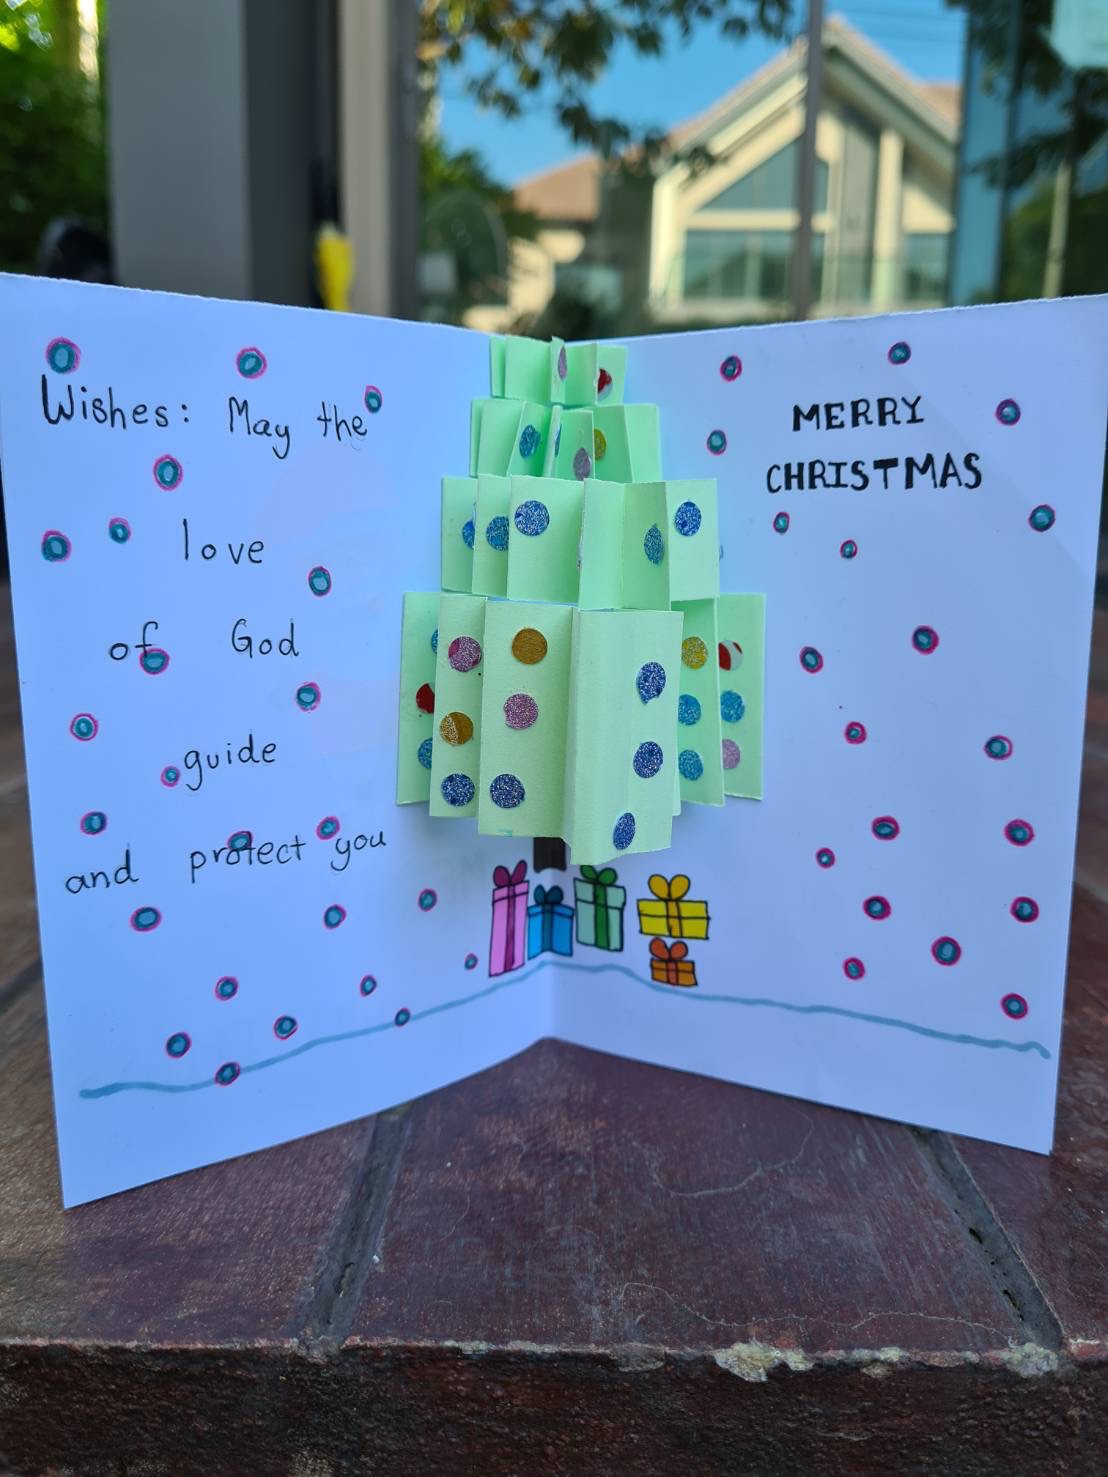 Wishes: May the
love
of God
guide
and protect you
MERRY
CHRISTMAS